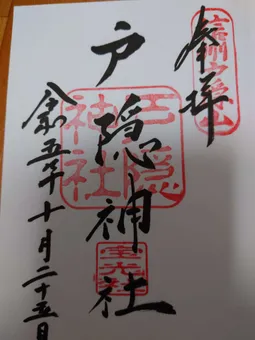 奉拝
信州戸隠山
戸隠神社
戸隠神社
宝光社
令和五年十月二十五日